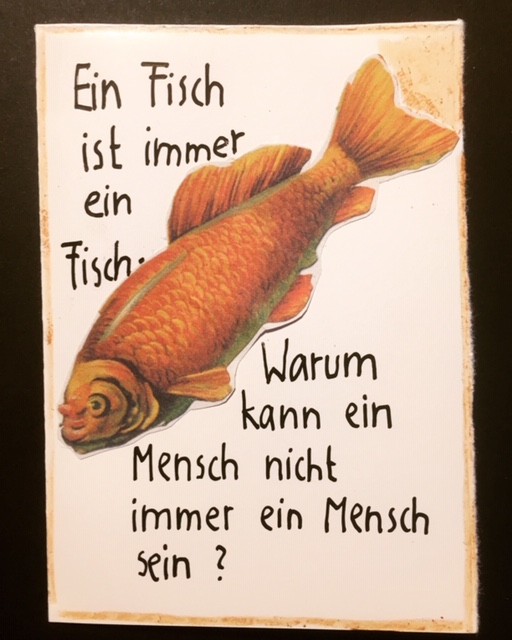 Ein Fisch
ist immer
ein
Fisch.
Warum
kann ein
Mensch nicht
immer ein Mensch
sein ?